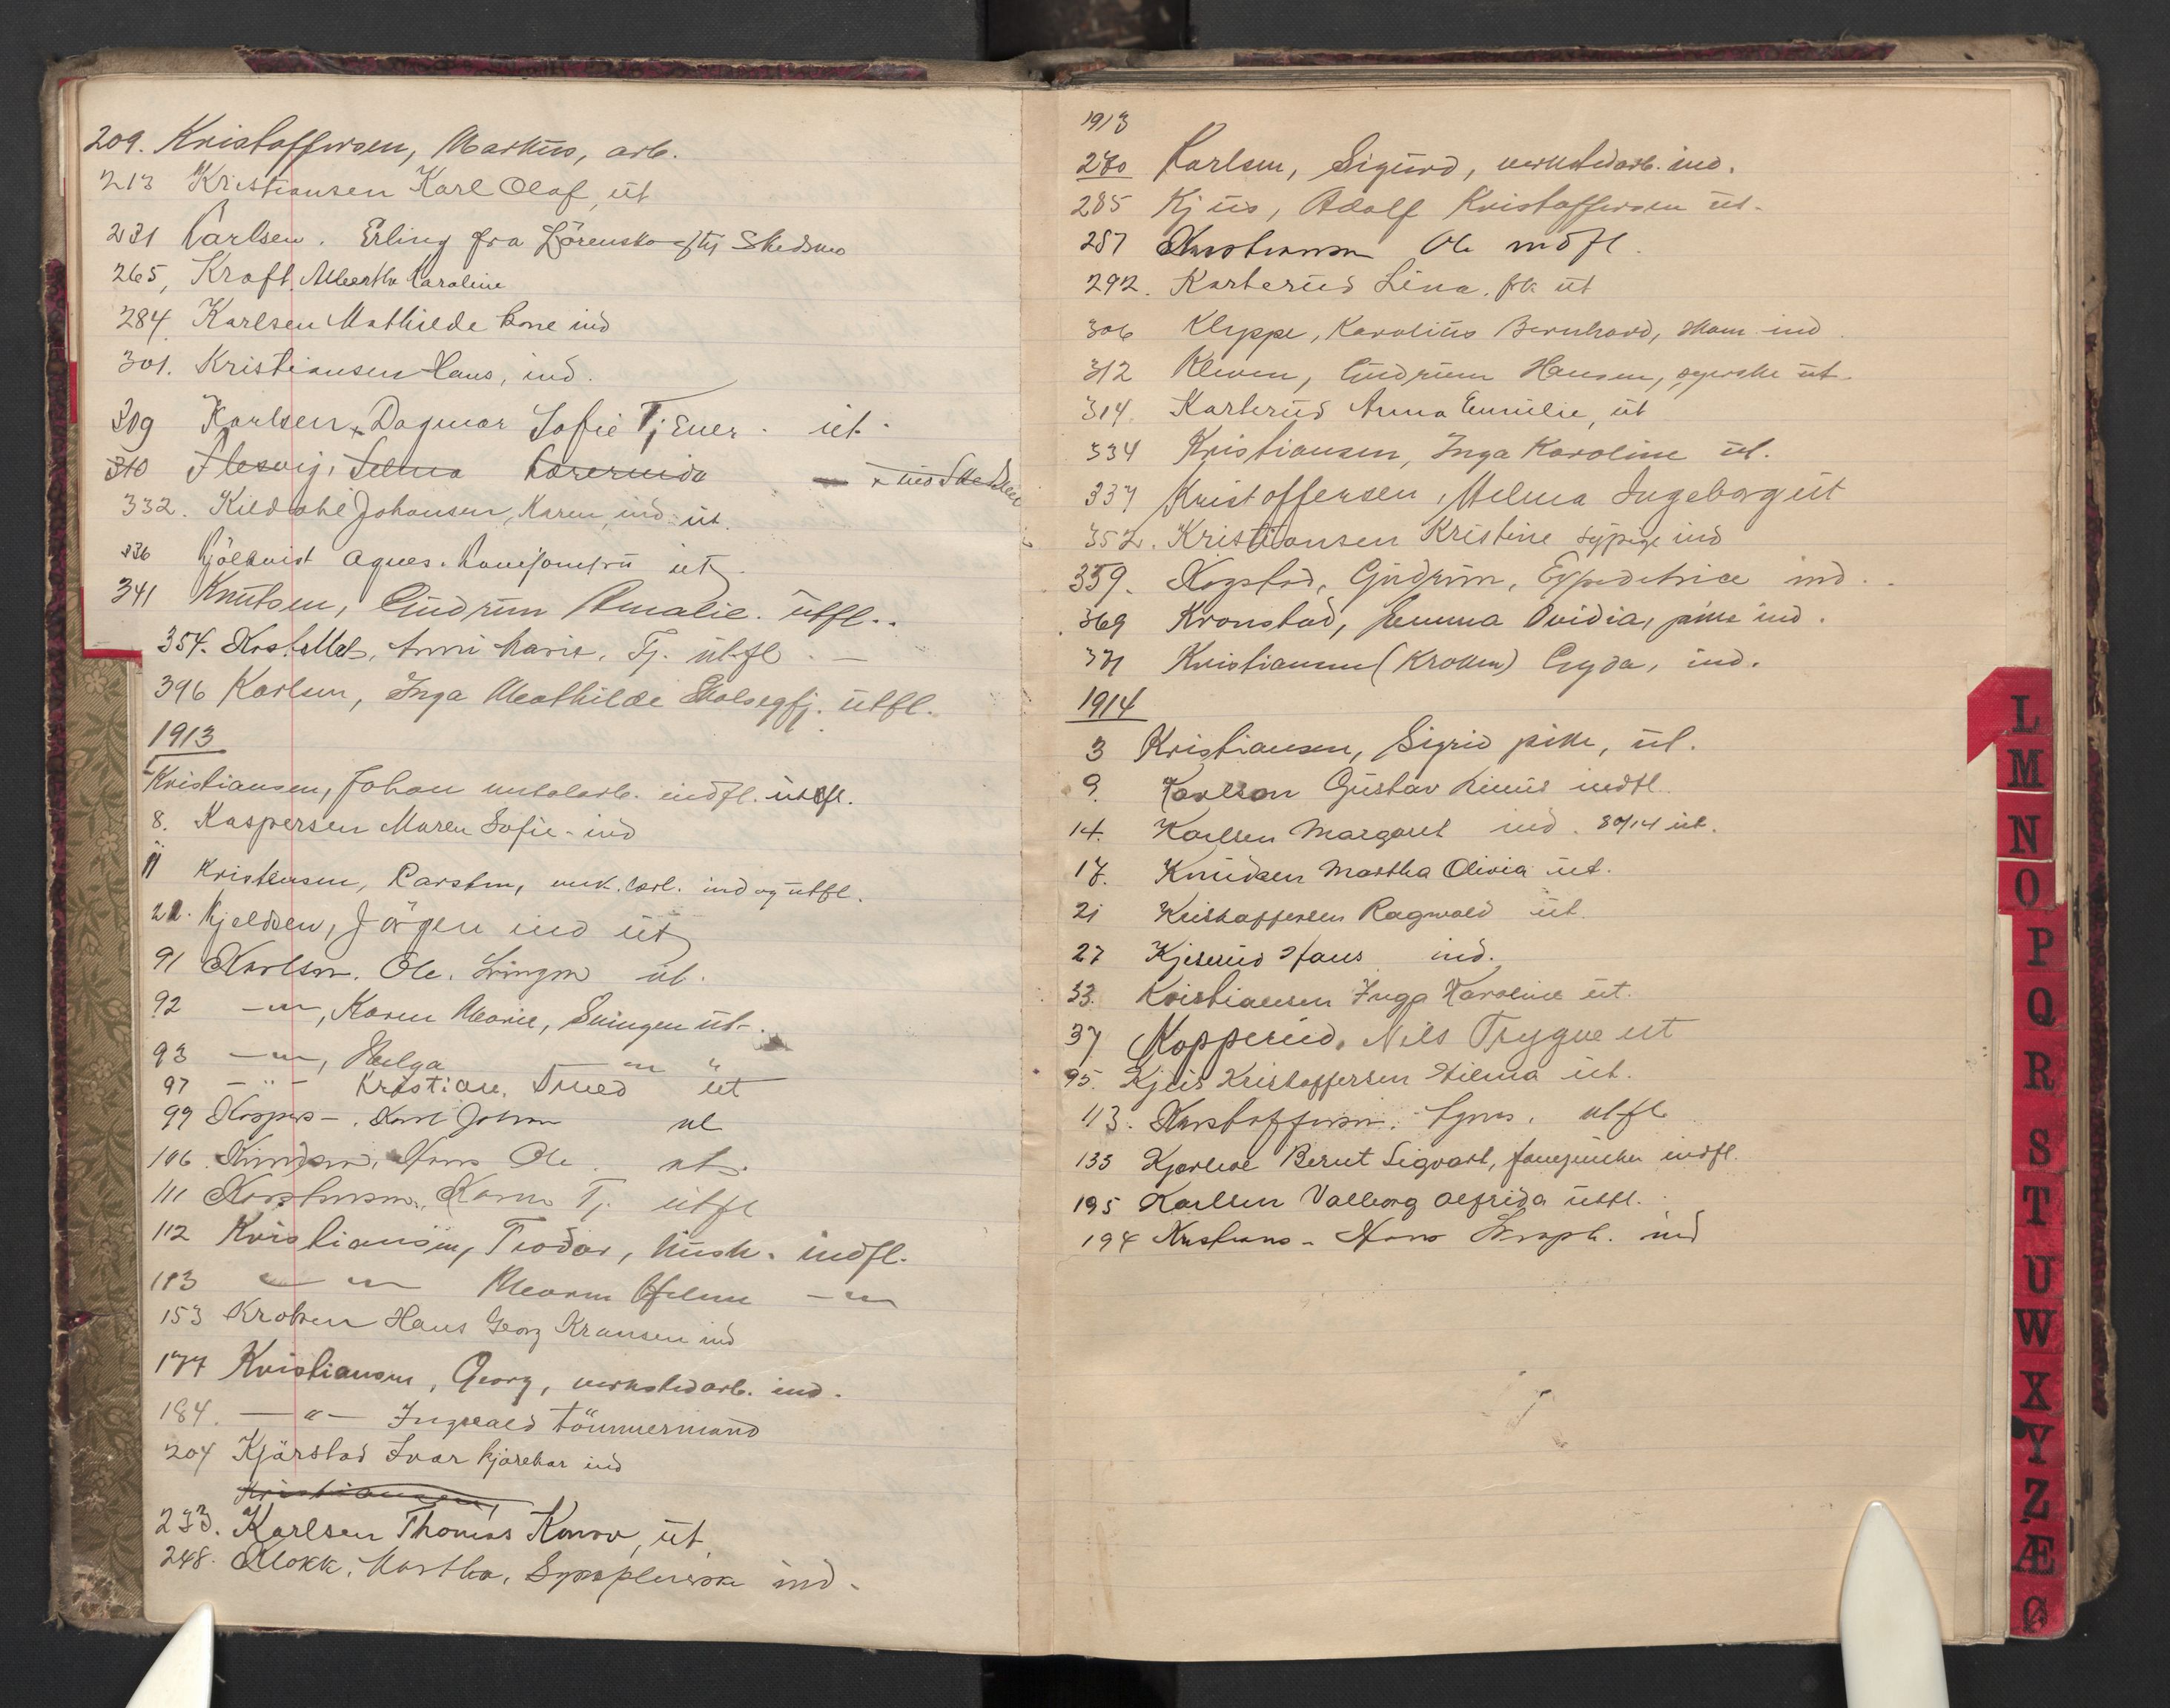 209. Kristoffersen, Markus, arb.
213 Kristiansen Karl Olaf, út
231 Carlsen. Erling fra Lörenskog til Skedsmo
265, Kraft Albertha Karoline
284 Karlsen Mathilde kone ind
301. Kristiansen Hans, ind.
309 Karlsen, Dagmar Sofie Tjener. út.
310 Flesvig, Selma
332. Kildahl Johansen, Karen, ind út.
336 Agnes. út
341 Knutsen, Gudrun Amalie. útfl..
354. Marie. Tj. útfl. —
396 Karlsen, Inga Mathilde útfl.
1913
1 Kristiansen, Johan indfl. útfl.
8. Kaspersen Maren Sofie - ind
11 Kristensen, Karsten, ind og utfl.
21. Kjeldsen, Jörgen ind út
91 Karlsen. Ole. Svingen út.
92 —"—, Karen Marie, Svingen út-.
93 —"—, Helga —"— "
97 —"— Kristian. Smed út
99 Kaspers-. Karl Johan ut
106. Hans Ole. ut.
111 Karen Tj. útfl
112 Kristiansen, Teodor, indfl.
113 —"— —"—
153 Kroken Hans Georg Kransen ind
177 Kristiansen, Georg, verkstedarb. ind.
184. —"— Ingvald tömmermand
204 Kjärstad Ivar kjörekar ind
Kristiansen,
233. Karlsen Thomas Konov, út.
248. Klokk, Martha, ind.
1913
280 Karlsen, Sigurd, verkstedarb. ind.
285 Kjus, Adolf Kristoffersen út.
287 Kristiansen Ole indfl.
292. Karterud Lina. út
306 Kleppe, Karolius Bernhard, ind.
312 Kleven, Gudrun Hansen, syerske út.
314. Karterud Anna Emilie, út
334 Kristiansen, Inga Karoline út.
337 Kristoffersen, Helma Ingeborg út
352. Kristiansen Kristine sypige ind
359. Kogstad, Gudrun, Expeditrice ind..
369 Kronstad, Emma Ovidia, pike ind.
371 Kristiansen (Kroken) Gyda, ind.
1914
3 Kristiansen, Sigrid pike, út.
9. Karlson Gustav Linus indfl.
14. Karlsen Margaret ind. 30/14 út.
17. Knudsen Martha Olivia út.
21 Kristoffersen Ragnvald út.
27 Kjeserud Hans ind.
33. Kristiansen Inga Karoline út.
37 Kopperud, Nils Trygve ut
95. Kjus Kristoffersen Hilma út.
113. Kristoffersen. utfl.
133 Bernt Sigvart, indfl.
195 Karlsen Valborg Alfrida útfl.
194 Kristians- Hans ind
L
M
N
O
P
Q
R
S
T
U
W
X
Y
Z
Æ
Ø